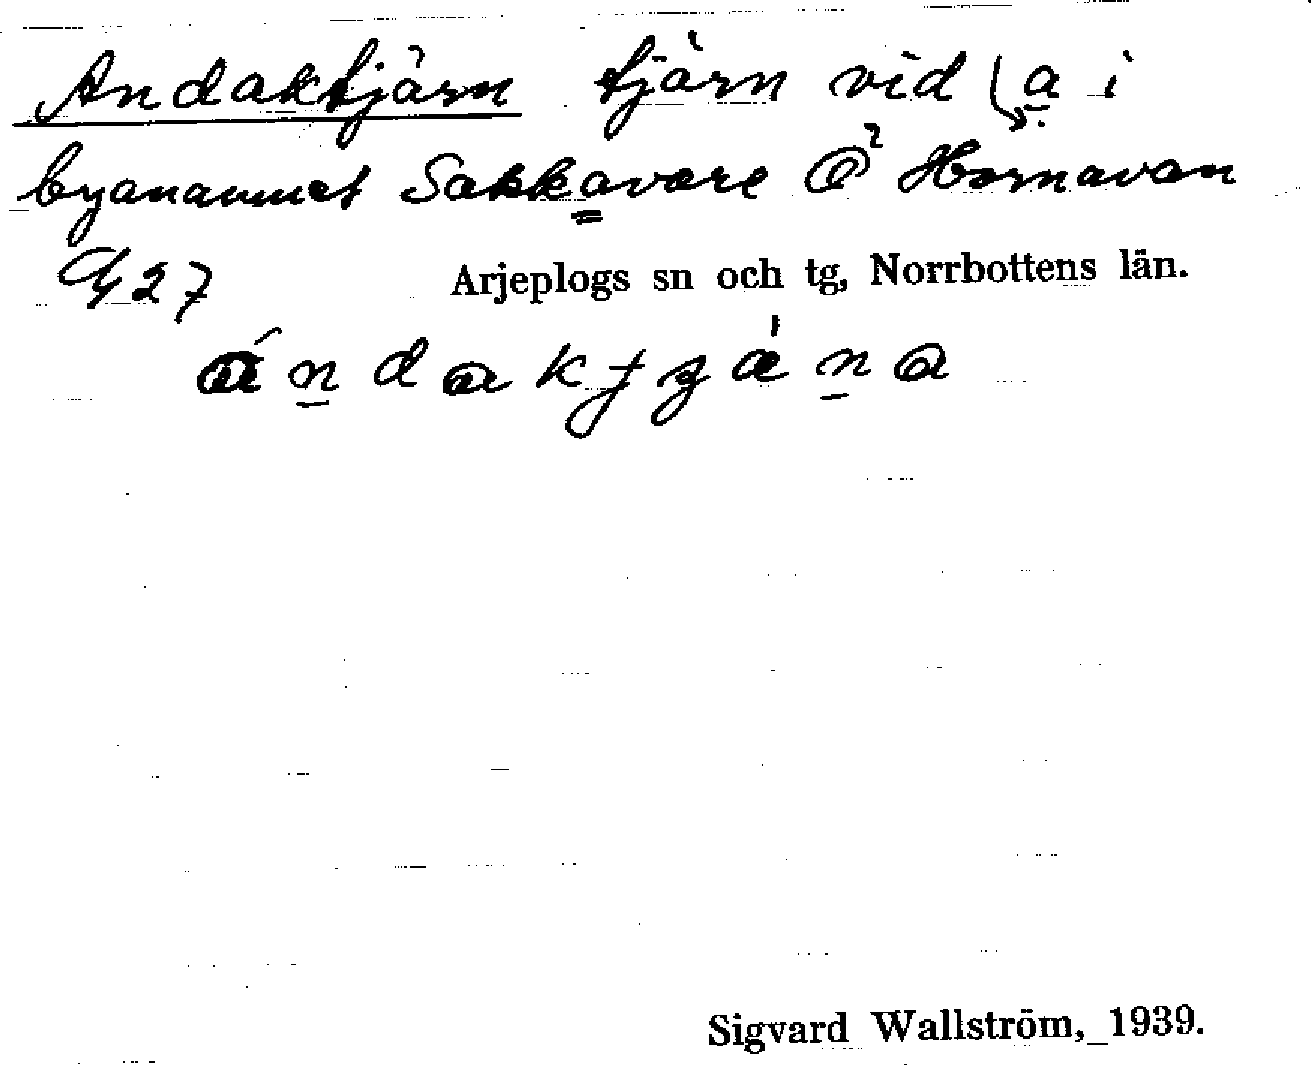 Andaktjärn tjärn vid a i
bynamnet Sakkavare Ö² Hornavan
G 27 Arjeplogs sn och tg, Norrbottens län.
Sigvard Wallström, 1939.